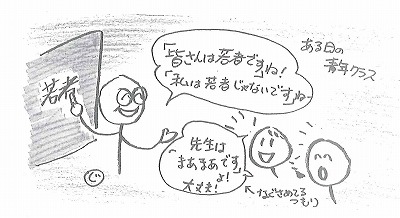 ある日の
青年クラス
若者
「皆さんは若者です」ね！
「私は若者じゃないです」ね
「先生は
まあまあです」
よ！
大丈夫！
なぐさめてる
つもり